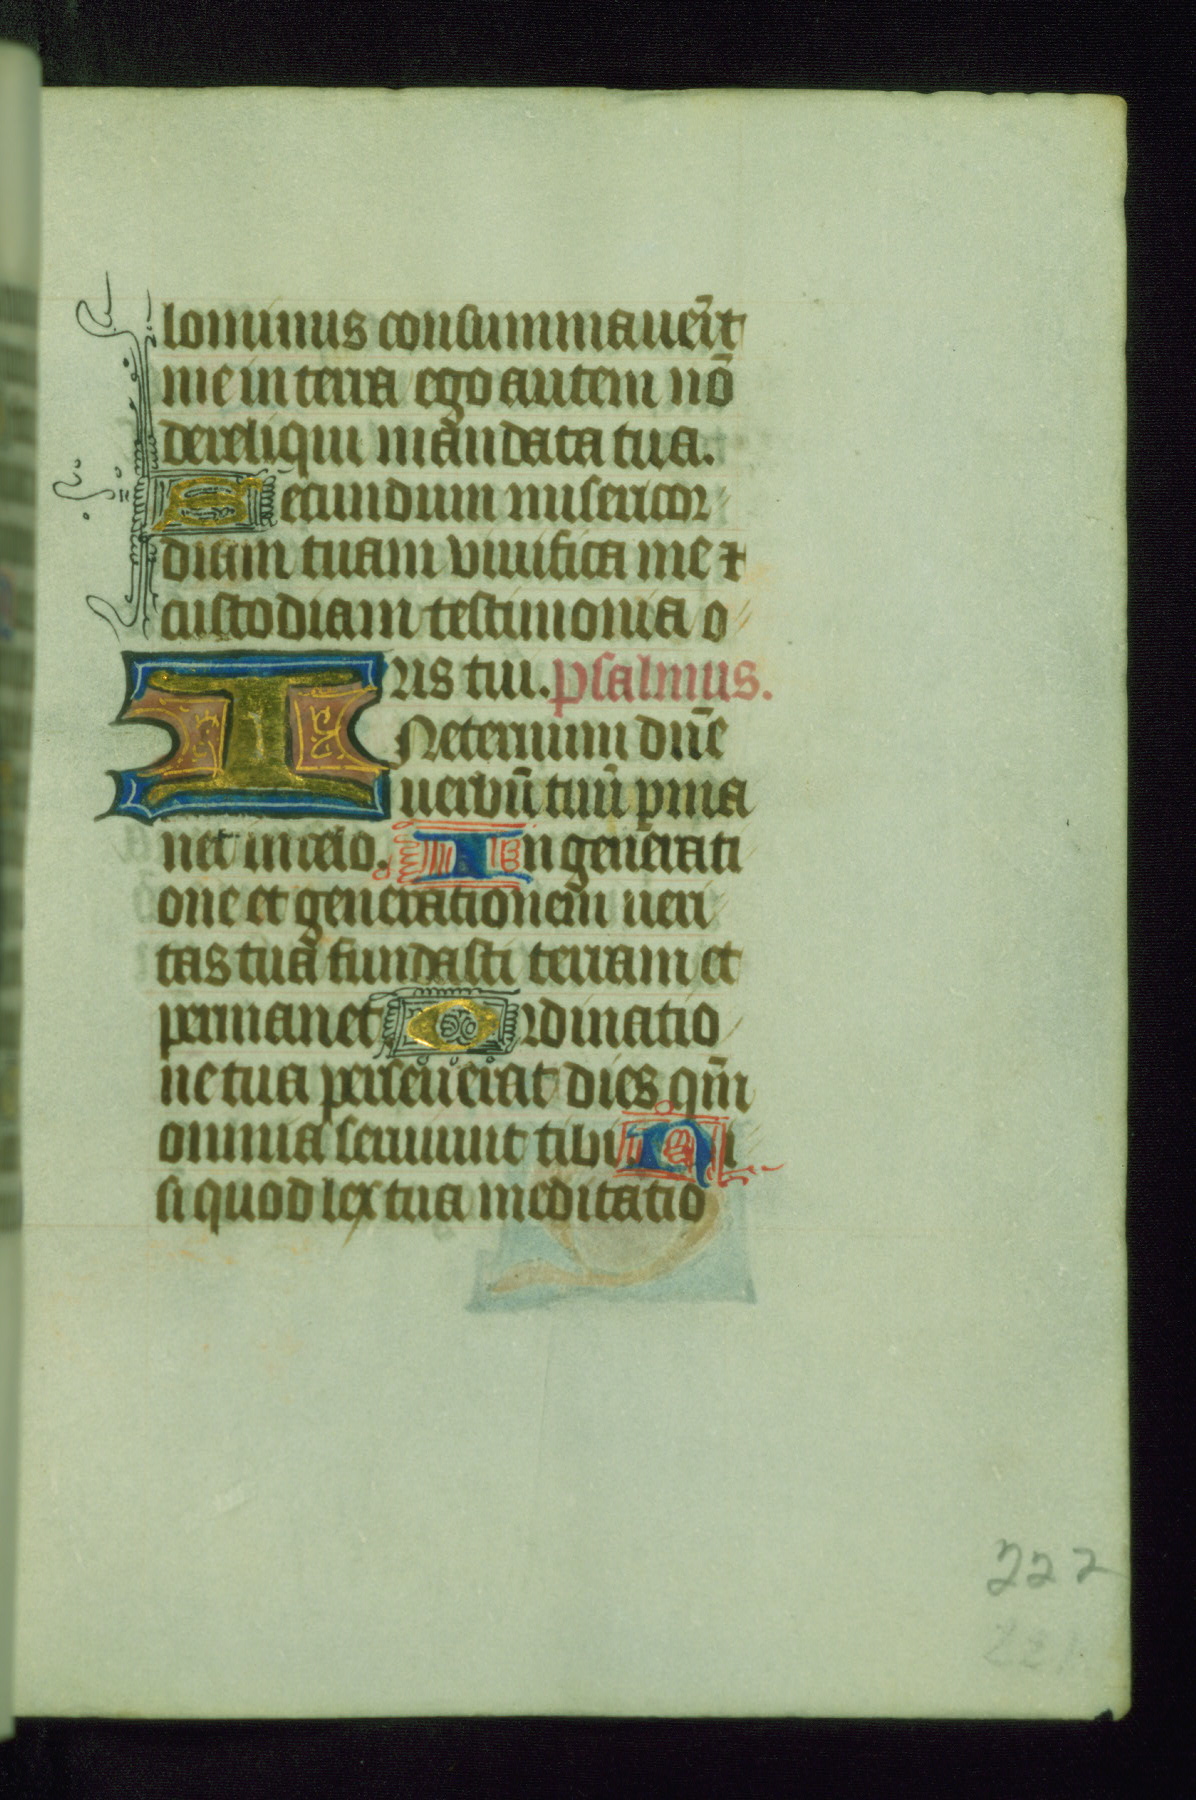 lominus consummauer̄t
me in terra ego autem nō
dereliqui mandata tua.
Secundum misericor
diam tuam viuifica me ⁊
custodiam testimonia o
ris tui. psalmus.
INeternum dn̄e
uerbū tuū pma
net in celo. In generati
one et generationem ueri
tas tua fundasti terram et
permanet Ordinatio
ne tua perseuerat dies qm̄
omnia seruiunt tibi. Ni
si quod lex tua meditatio
222
221